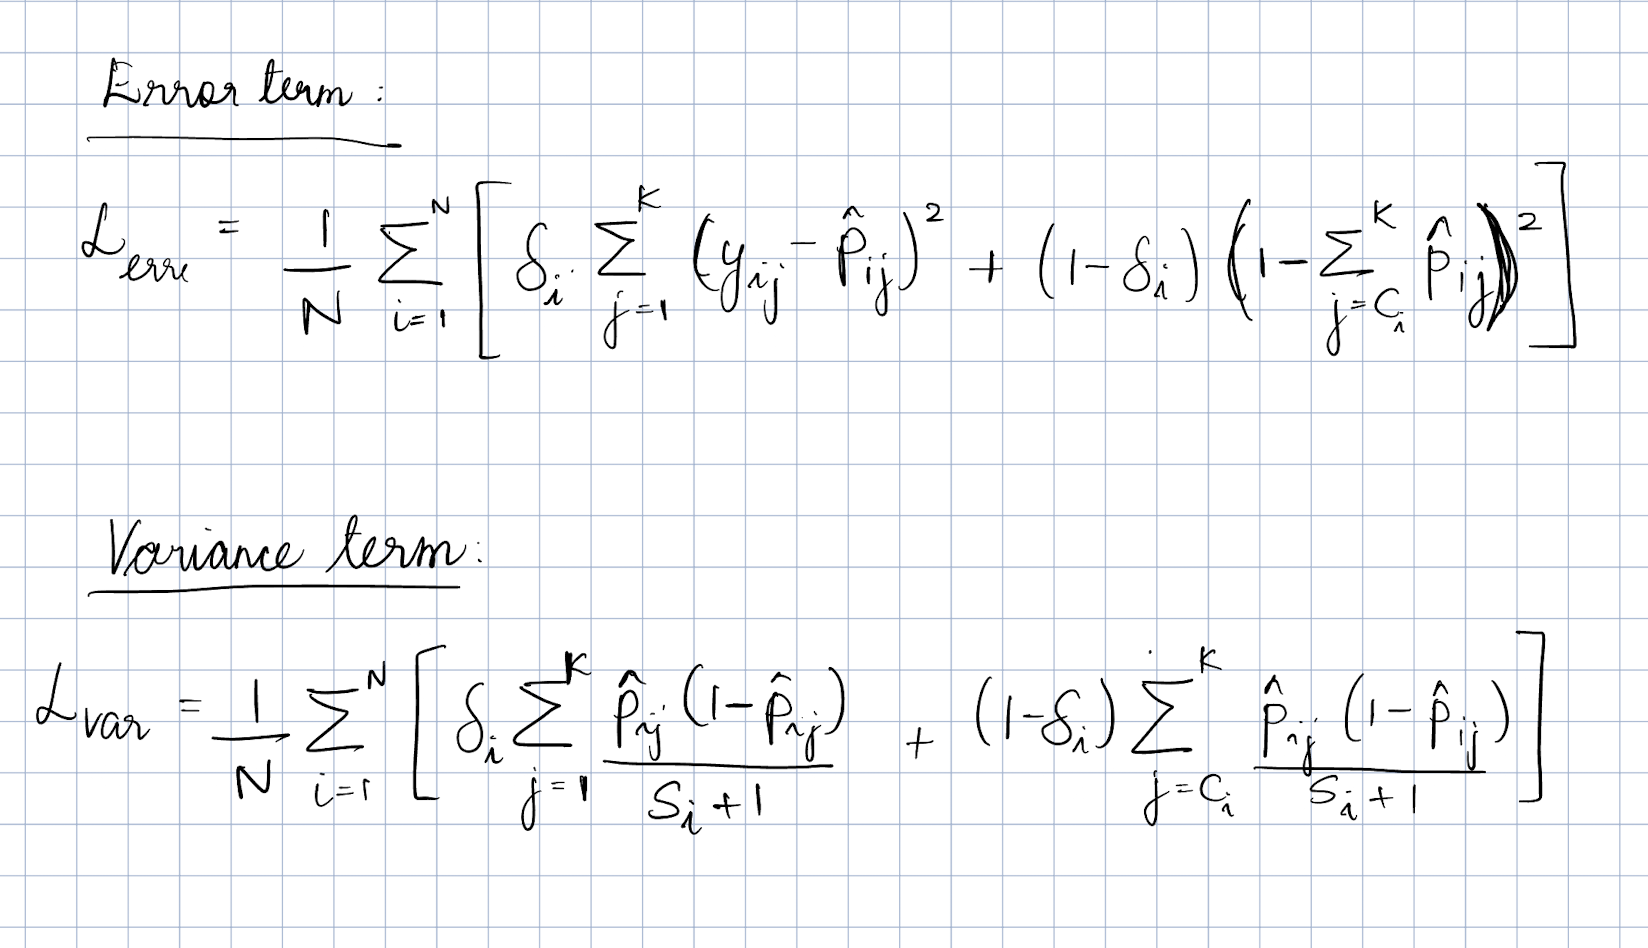 Error term :
ℒ_erre = 1/N ∑_{i=1}^{N} [ δ_i ∑_{j=1}^{K} (y_ij - p̂_ij)^2 + (1-δ_i) (1 - ∑_{j=C_i}^{K} p̂_ij)^2 ]
Variance term :
ℒ_var = 1/N ∑_{i=1}^{N} [ δ_i ∑_{j=1}^{K} p̂_ij (1-p̂_ij) / (S_i+1) + (1-δ_i) ∑_{j=C_i}^{K} p̂_ij (1-p̂_ij) / (S_i+1) ]